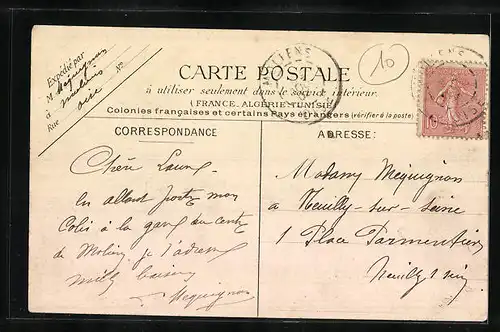 Expédié par
M. Mequignon
à
Oise
Rue Nº
CARTE POSTALE
à utiliser seulement dans le service intérieur.
(FRANCE, ALGÉRIE, TUNISIE)
Colonies françaises et certains Pays étrangers (vérifier à la poste)
CORRESPONDANCE
ADRESSE:
10
Chère
en allant porter mon
Colis à la gare
de je t'adresse
mille
Mequignon
Madame Mequignon
à Neuilly-sur-Seine
1 Place Parmentier
Neuilly s/